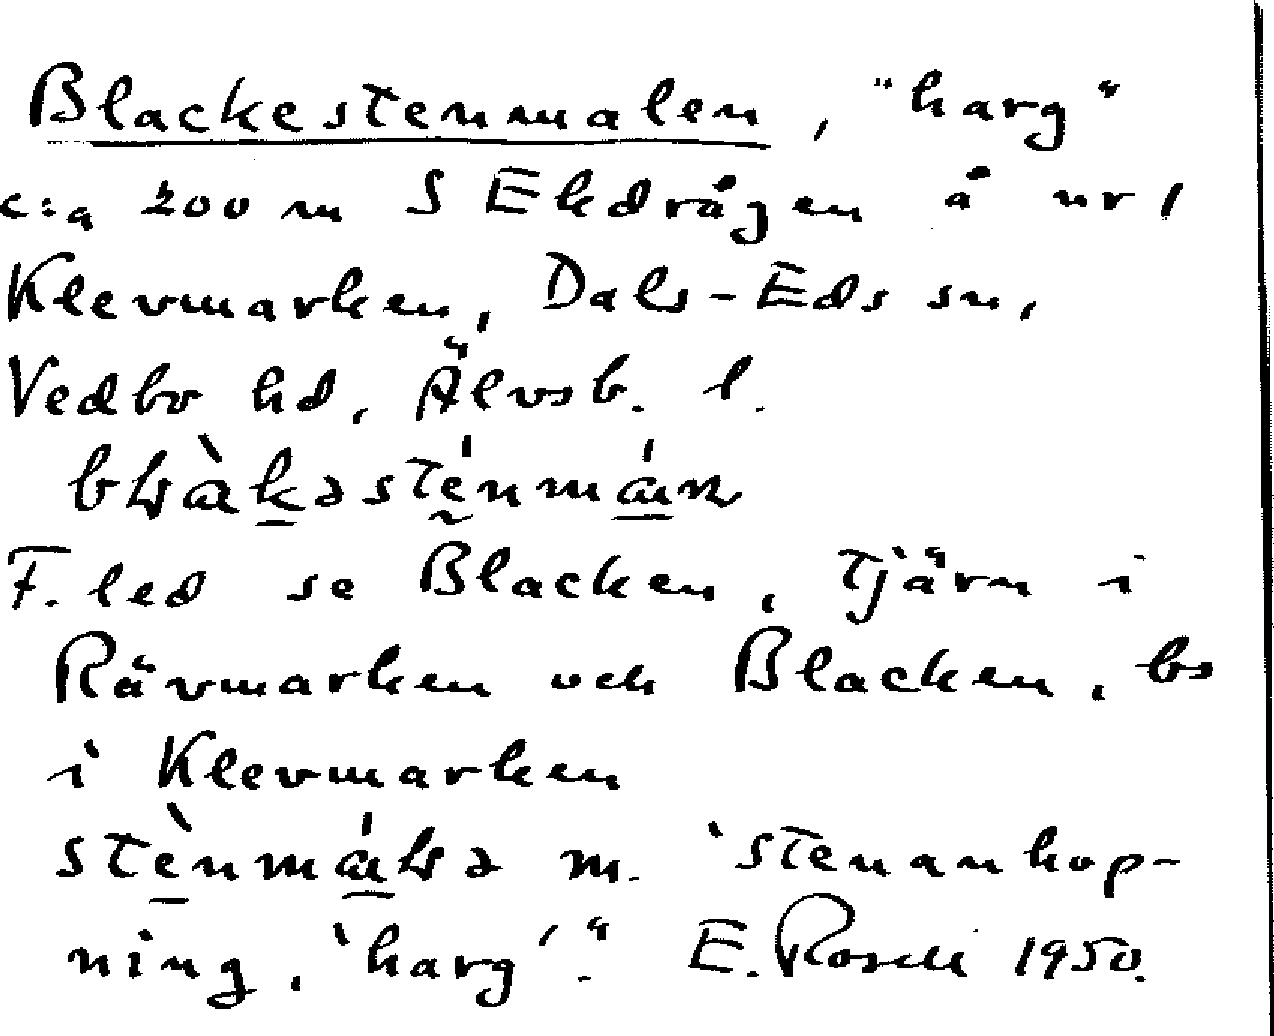 Blackestenmalen, "harg"
c:a 200 m S Ekdrågen å nr 1
Klevmarken, Dals-Eds sn,
Vedbo hd, Älvsb. l.
F. led se Blacken, tjärn i
Rävmarken och Blacken, bs
i Klevmarken
m. 'stenanhop-
ning, 'harg'." E. Rosell 1950.